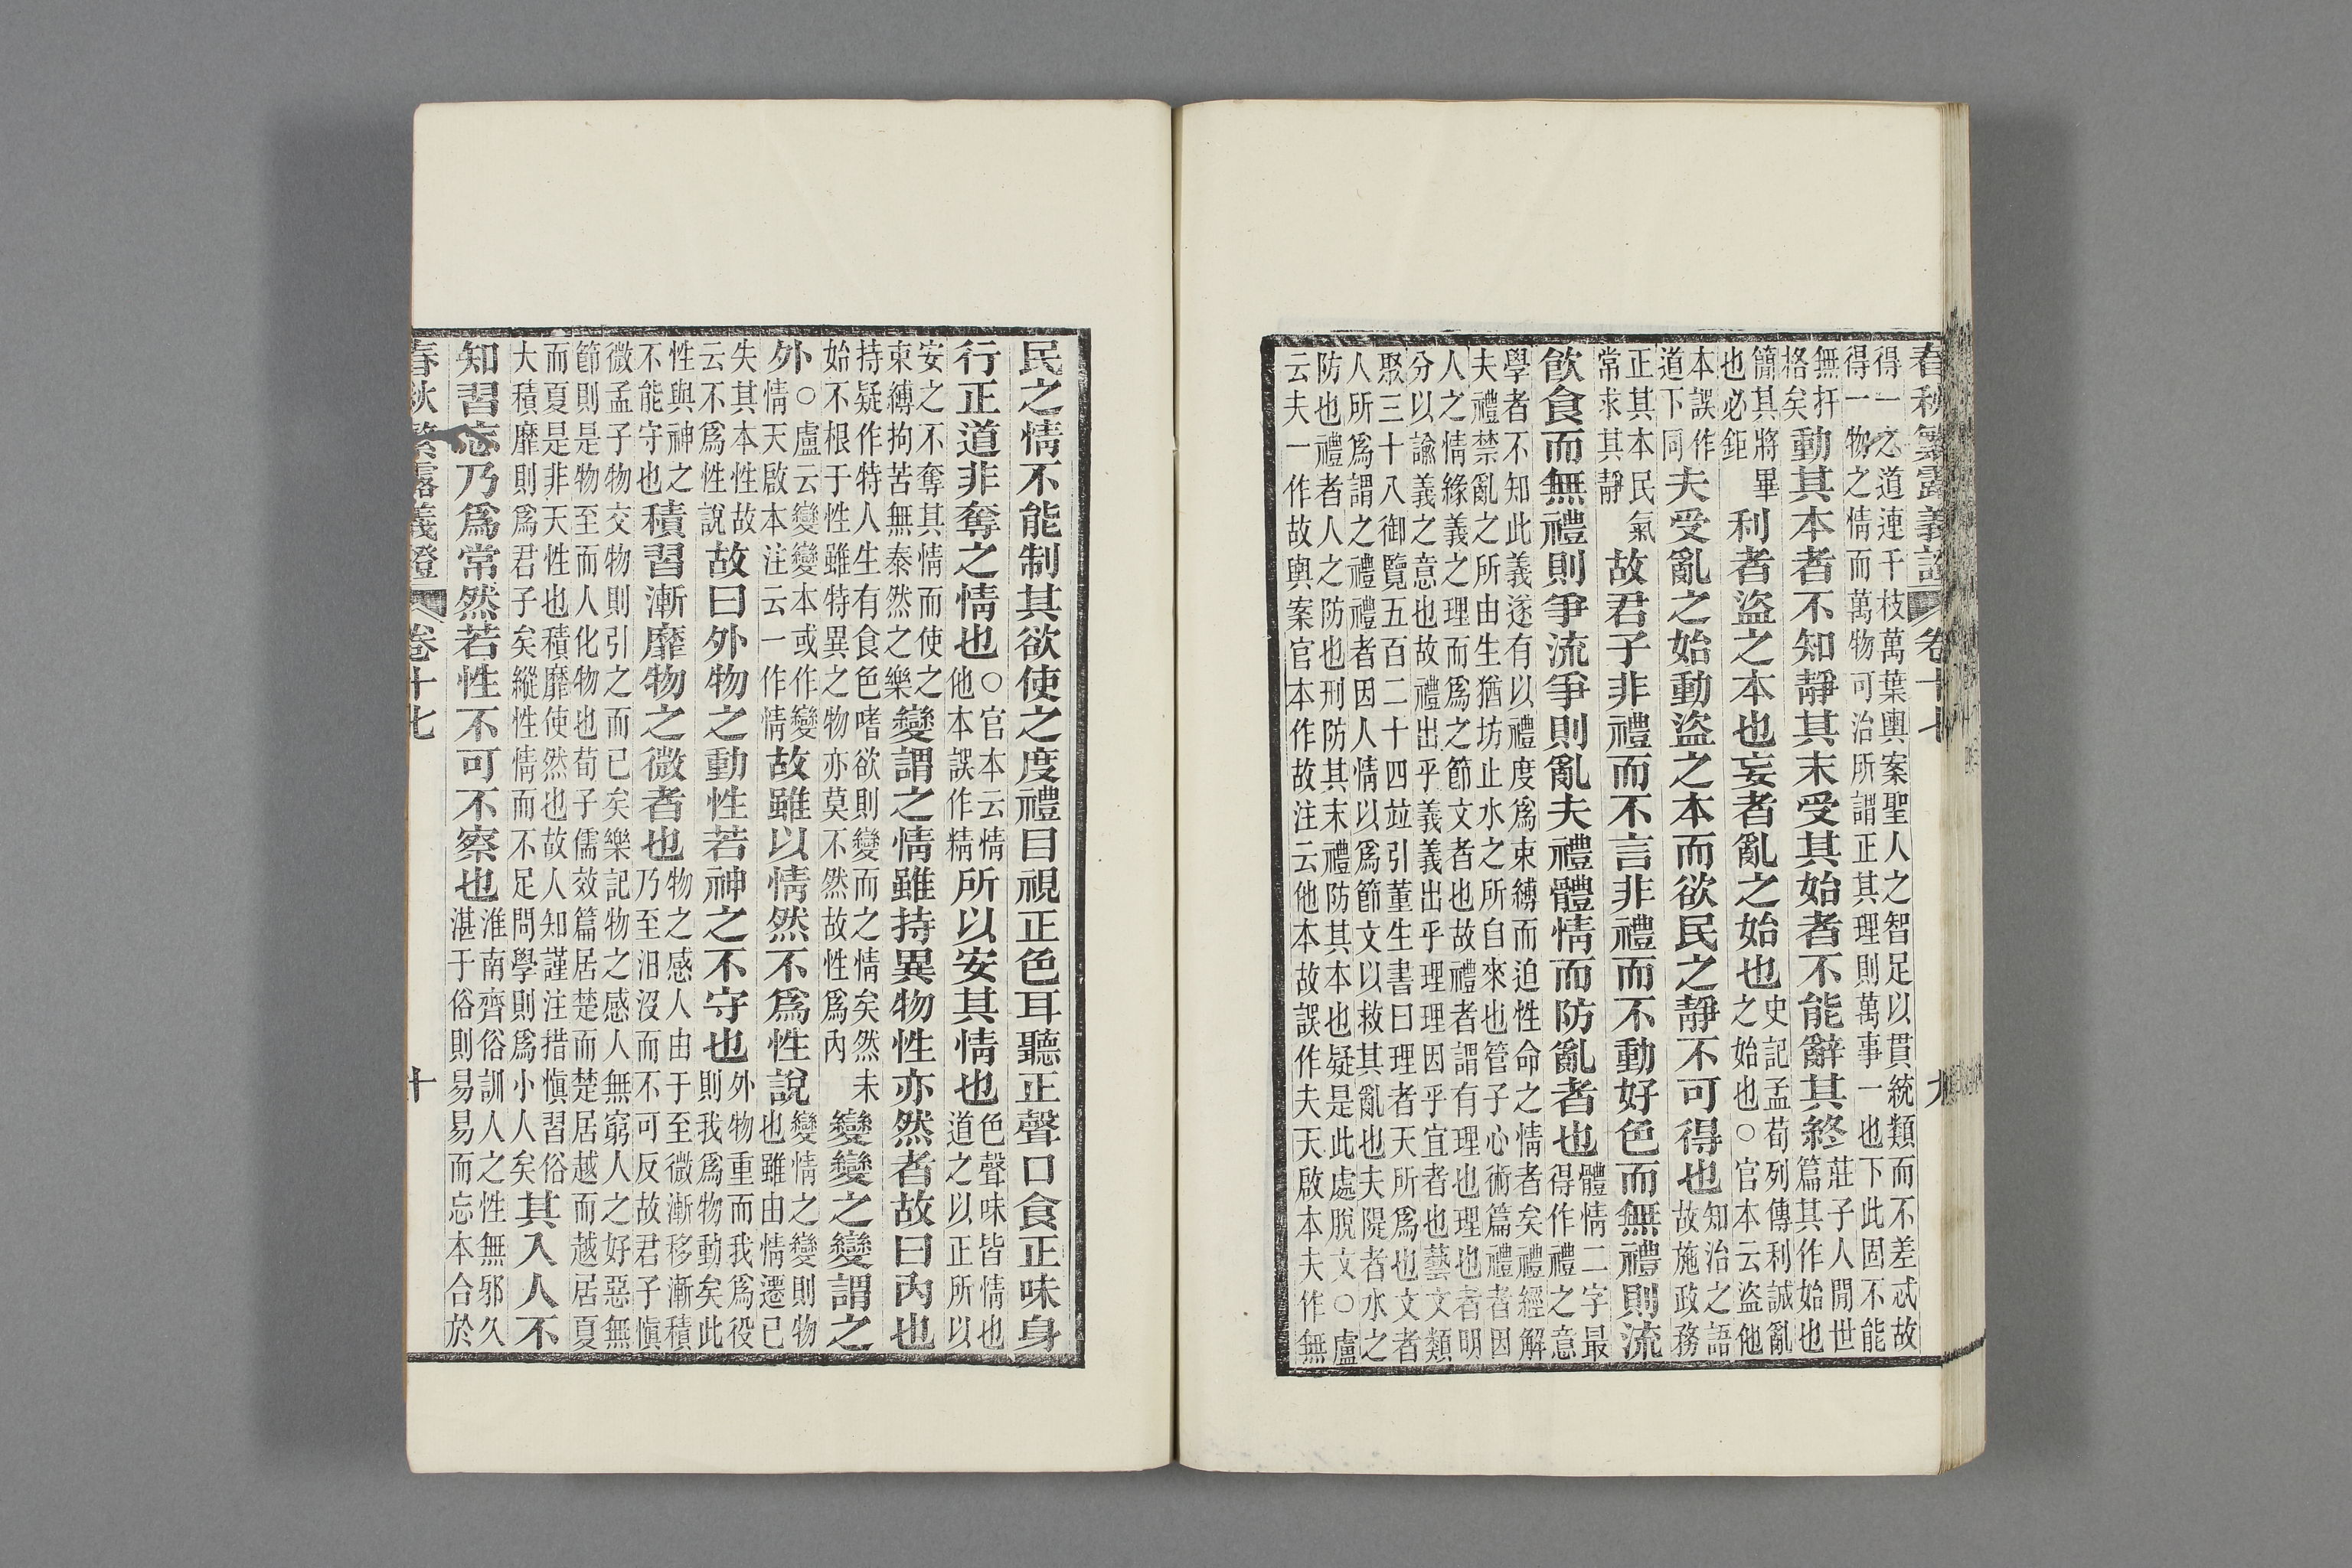 春秋繁露義證 卷十七 九
得一之道連千枝萬葉輿案聖人之智足以貫統類而不差忒故
得一物之情而萬物可治所謂正其理則萬事一也下此固不能
無扞格矣動其本者不知靜其末受其始者不能辭其終莊子人閒世篇其作始也
簡其將畢也必鉅利者盜之本也妄者亂之始也史記孟荀列傳利誠亂之始也○官本云盜他
本誤作道下同夫受亂之始動盜之本而欲民之靜不可得也知治之語故施政務
正其本民氣常求其靜故君子非禮而不言非禮而不動好色而無禮則流
飲食而無禮則爭流爭則亂夫禮體情而防亂者也體情二字最得作禮之意
學者不知此義遂有以禮度爲束縛而迫性命之情者矣禮經解
夫禮禁亂之所由生猶坊止水之所自來也管子心術篇禮者因
人之情緣義之理而爲之節文者也故禮者謂有理也理也者明
分以諭義之意也故禮出乎義義出乎理理因乎宜者也藝文類
聚三十八御覽五百二十四竝引董生書曰理者天所爲也文者
人所爲謂之禮禮者因人情以爲節文以救其亂也夫隄者水之
防也禮者人之防也刑防其末禮防其本也疑是此處脫文○盧
云夫一作故輿案官本作故注云他本故誤作夫天啟本夫作無
民之情不能制其欲使之度禮目視正色耳聽正聲口食正味身
行正道非奪之情也○官本云情他本誤作精所以安其情也色聲味皆情也道之以正所以
安之不奪其情而使之束縛拘苦無泰然之樂變謂之情雖持異物性亦然者故曰內也
持疑作特人生有食色嗜欲則變而之情矣然未始不根于性雖特異之物亦莫不然故性爲內變變之變謂之
外○盧云變變本或作變情天啟本注云一作情故雖以情然不爲性說變情之變則物也雖由情遷已
失其本性故云不爲性說故曰外物之動性若神之不守也外物重而我爲役則我爲物動矣此
性與神之不能守也積習漸靡物之微者也物之感人由于至微漸移漸積乃至汨沒而不可反故君子愼
微孟子物交物則引之而已矣樂記物之感人無窮人之好惡無
節則是物至而人化物也荀子儒效篇居楚而楚居越而越居夏
而夏是非天性也積靡使然也故人知謹注措愼習俗大積靡則爲君子矣縱性情而不足問學則爲小人矣其入人不
知習忘乃爲常然若性不可不察也淮南齊俗訓人之性無邪久湛于俗則易易而忘本合於
春秋繁露義證 卷十七 十